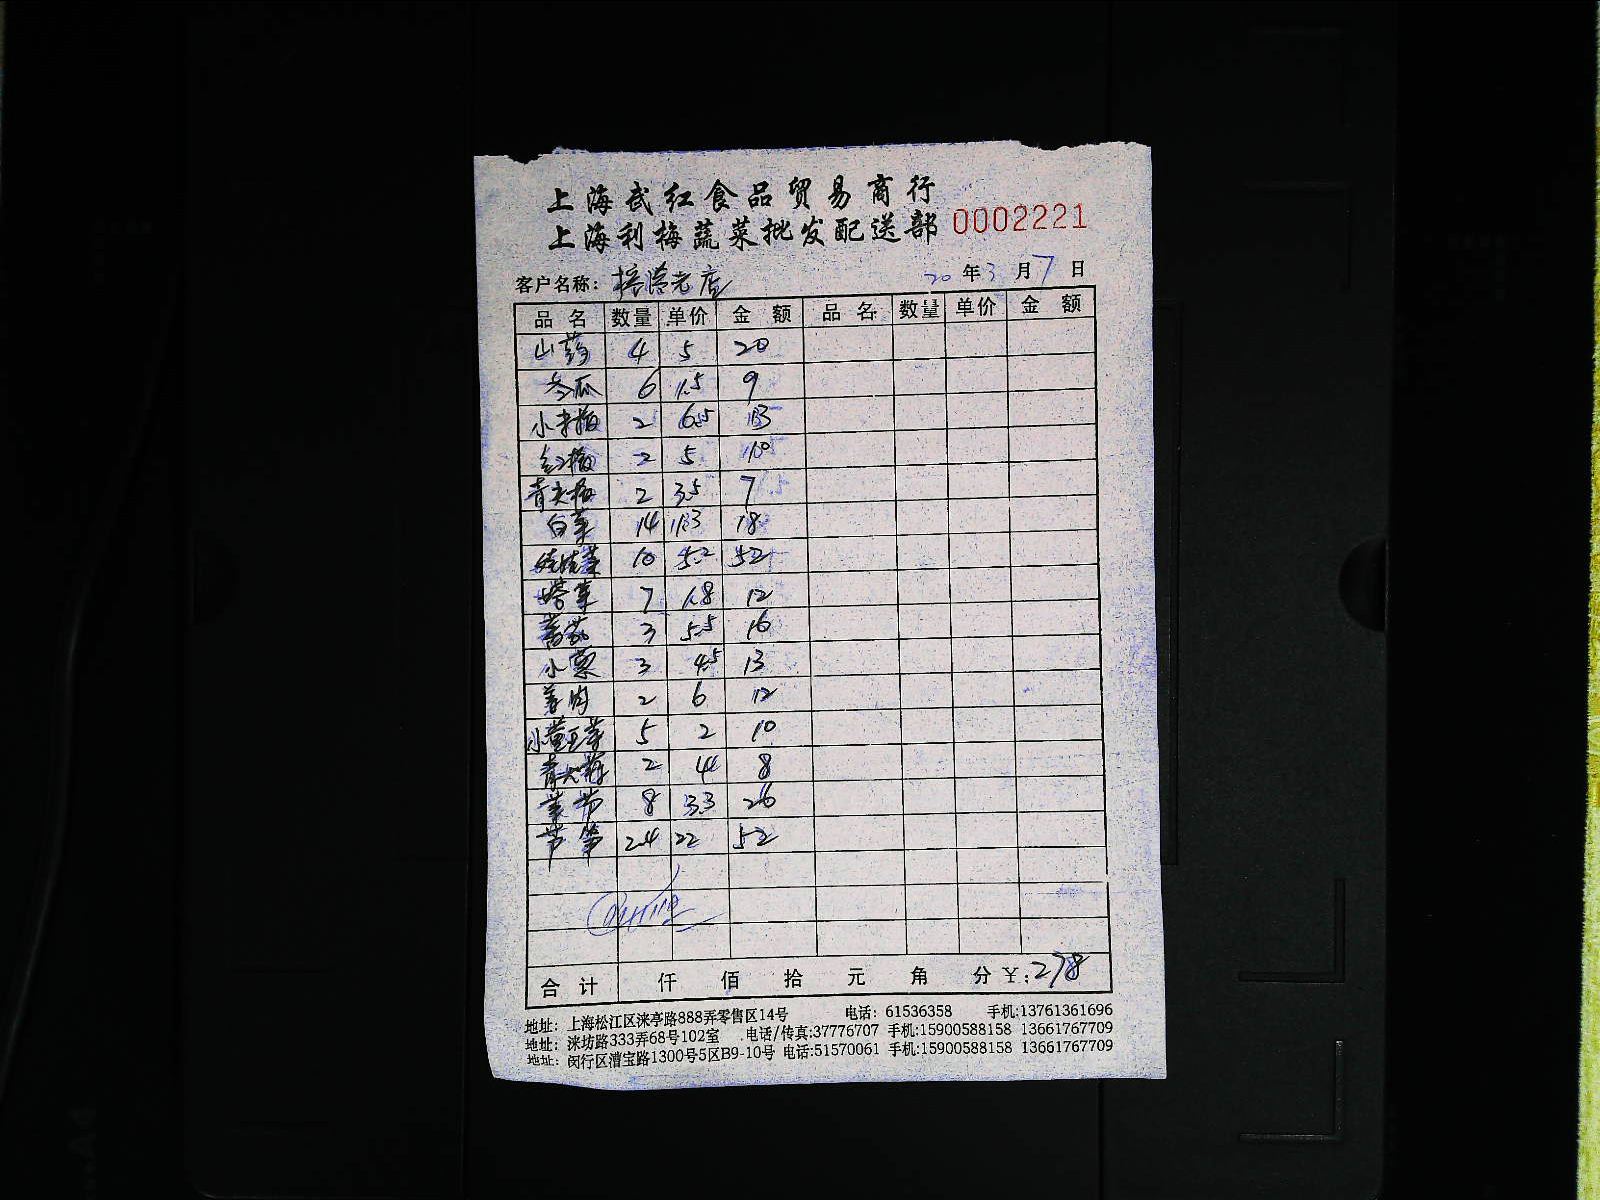 上海武红食品贸易商行
上海利梅蔬菜批发配送部 0002221
客户名称: 老店 20年3月7日
品名 数量 单价 金额 品名 数量 单价 金额
山药 4 5 20
冬瓜 6 1.5 9
小米椒 2 6.5 13
红椒 2 5 10
青尖椒 2 3.5 7
白菜 14 1.3 18
娃娃菜 10 5.2 52
塔菜 7 1.8 12
蕃茄 3 5.5 16
小葱 3 4.5 13
姜肉 2 6 12
小黄豆芽 5 2 10
青大蒜 2 4 8
8 3.3 26
24 22 52
合计 仟 佰 拾 元 角 分 ¥:278
地址: 上海松江区涞亭路888弄零售区14号 电话: 61536358 手机:13761361696
地址: 涞坊路333弄68号102室 电话/传真:37776707 手机:15900588158 13661767709
地址: 闵行区漕宝路1300号5区B9-10号 电话:51570061 手机:15900588158 13661767709